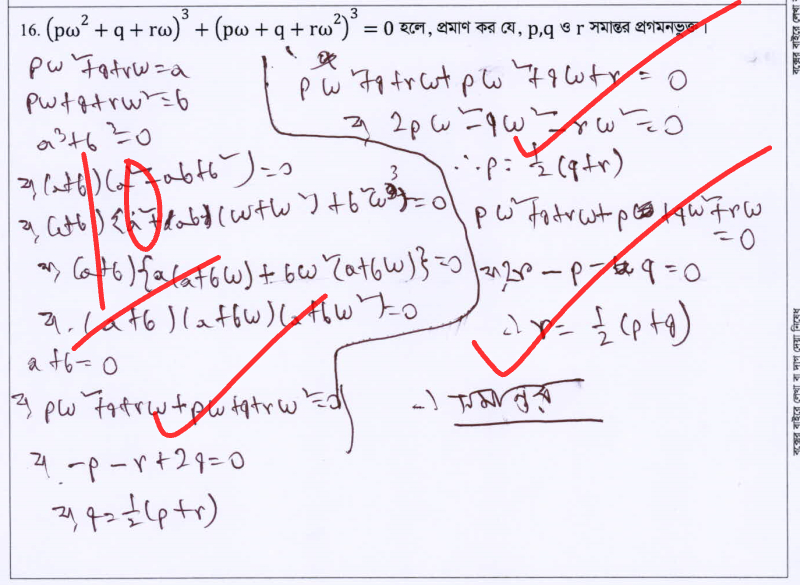 16. (pω² + q + rω)³ + (pω + q + rω²)³ = 0 হলে, প্রমাণ কর যে, p,q ও r সমান্তর প্রগমনভুক্ত।
pω²+q+rω=a
pω+q+rω²=b
a³+b³=0
বা, (a+b)(a²-ab+b²)=0
বা, (a+b){a²+ab(ω+ω²)+b²ω³}=0
বা, (a+b){a(a+bω)+bω²(a+bω)}=0
বা, (a+b)(a+bω)(a+bω²)=0
a+b=0
বা, pω²+q+rω+pω+q+rω²=0
বা, -p-r+2q=0
বা, q=½(p+r)
pω²+q+rω+pω²+qω+r=0
বা, 2pω²-qω²-rω²=0
∴p=½(q+r)
pω²+q+rω+p+qω²+rω
=0
বা, 2r-p-q=0
∴ r=½(p+q)
∴ সমান্তর